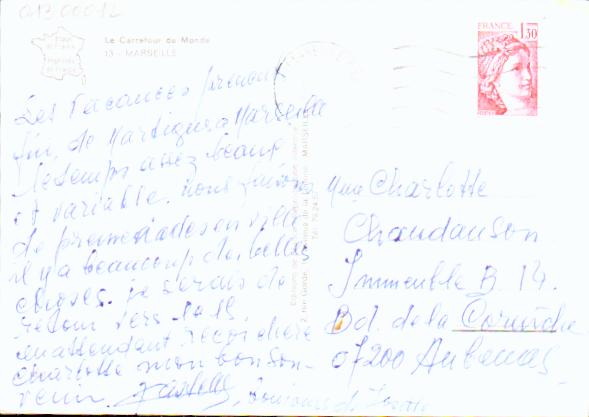 Q13 00012
Le Carrefour du Monde
13 - MARSEILLE
FRANCE 1,30
Les vacances prennent
fin, de Martigues a Marseille
le temps assez beau
et variable. nous faisons
de promenades en ville
il y a beaucoup de belles
choses. je serais de
retour vers le 15.
en attendant recois chere
Charlotte mon bon sou-
venir.
Mme Charlotte
Chaudanson
Immeuble B 14.
Bd. de la Corniche
07200 Aubenas